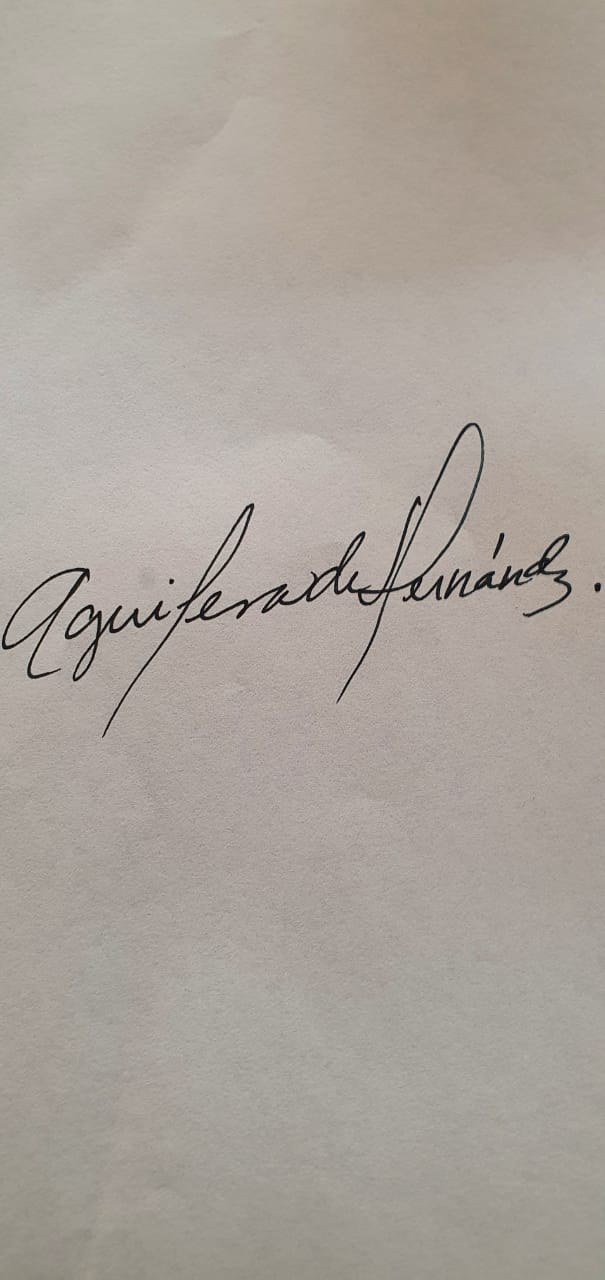 Aguilera de Fernández.